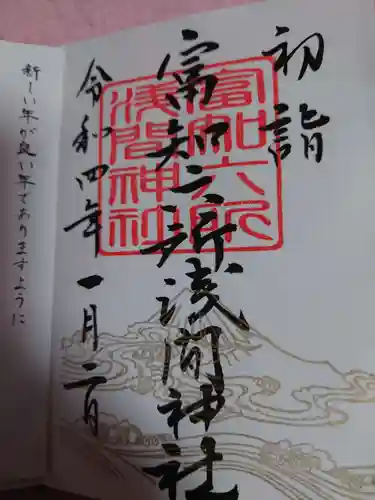 初詣
富知六所浅間神社
令和四年一月二日
富知六所
浅間神社
新しい年が良い年でありますように